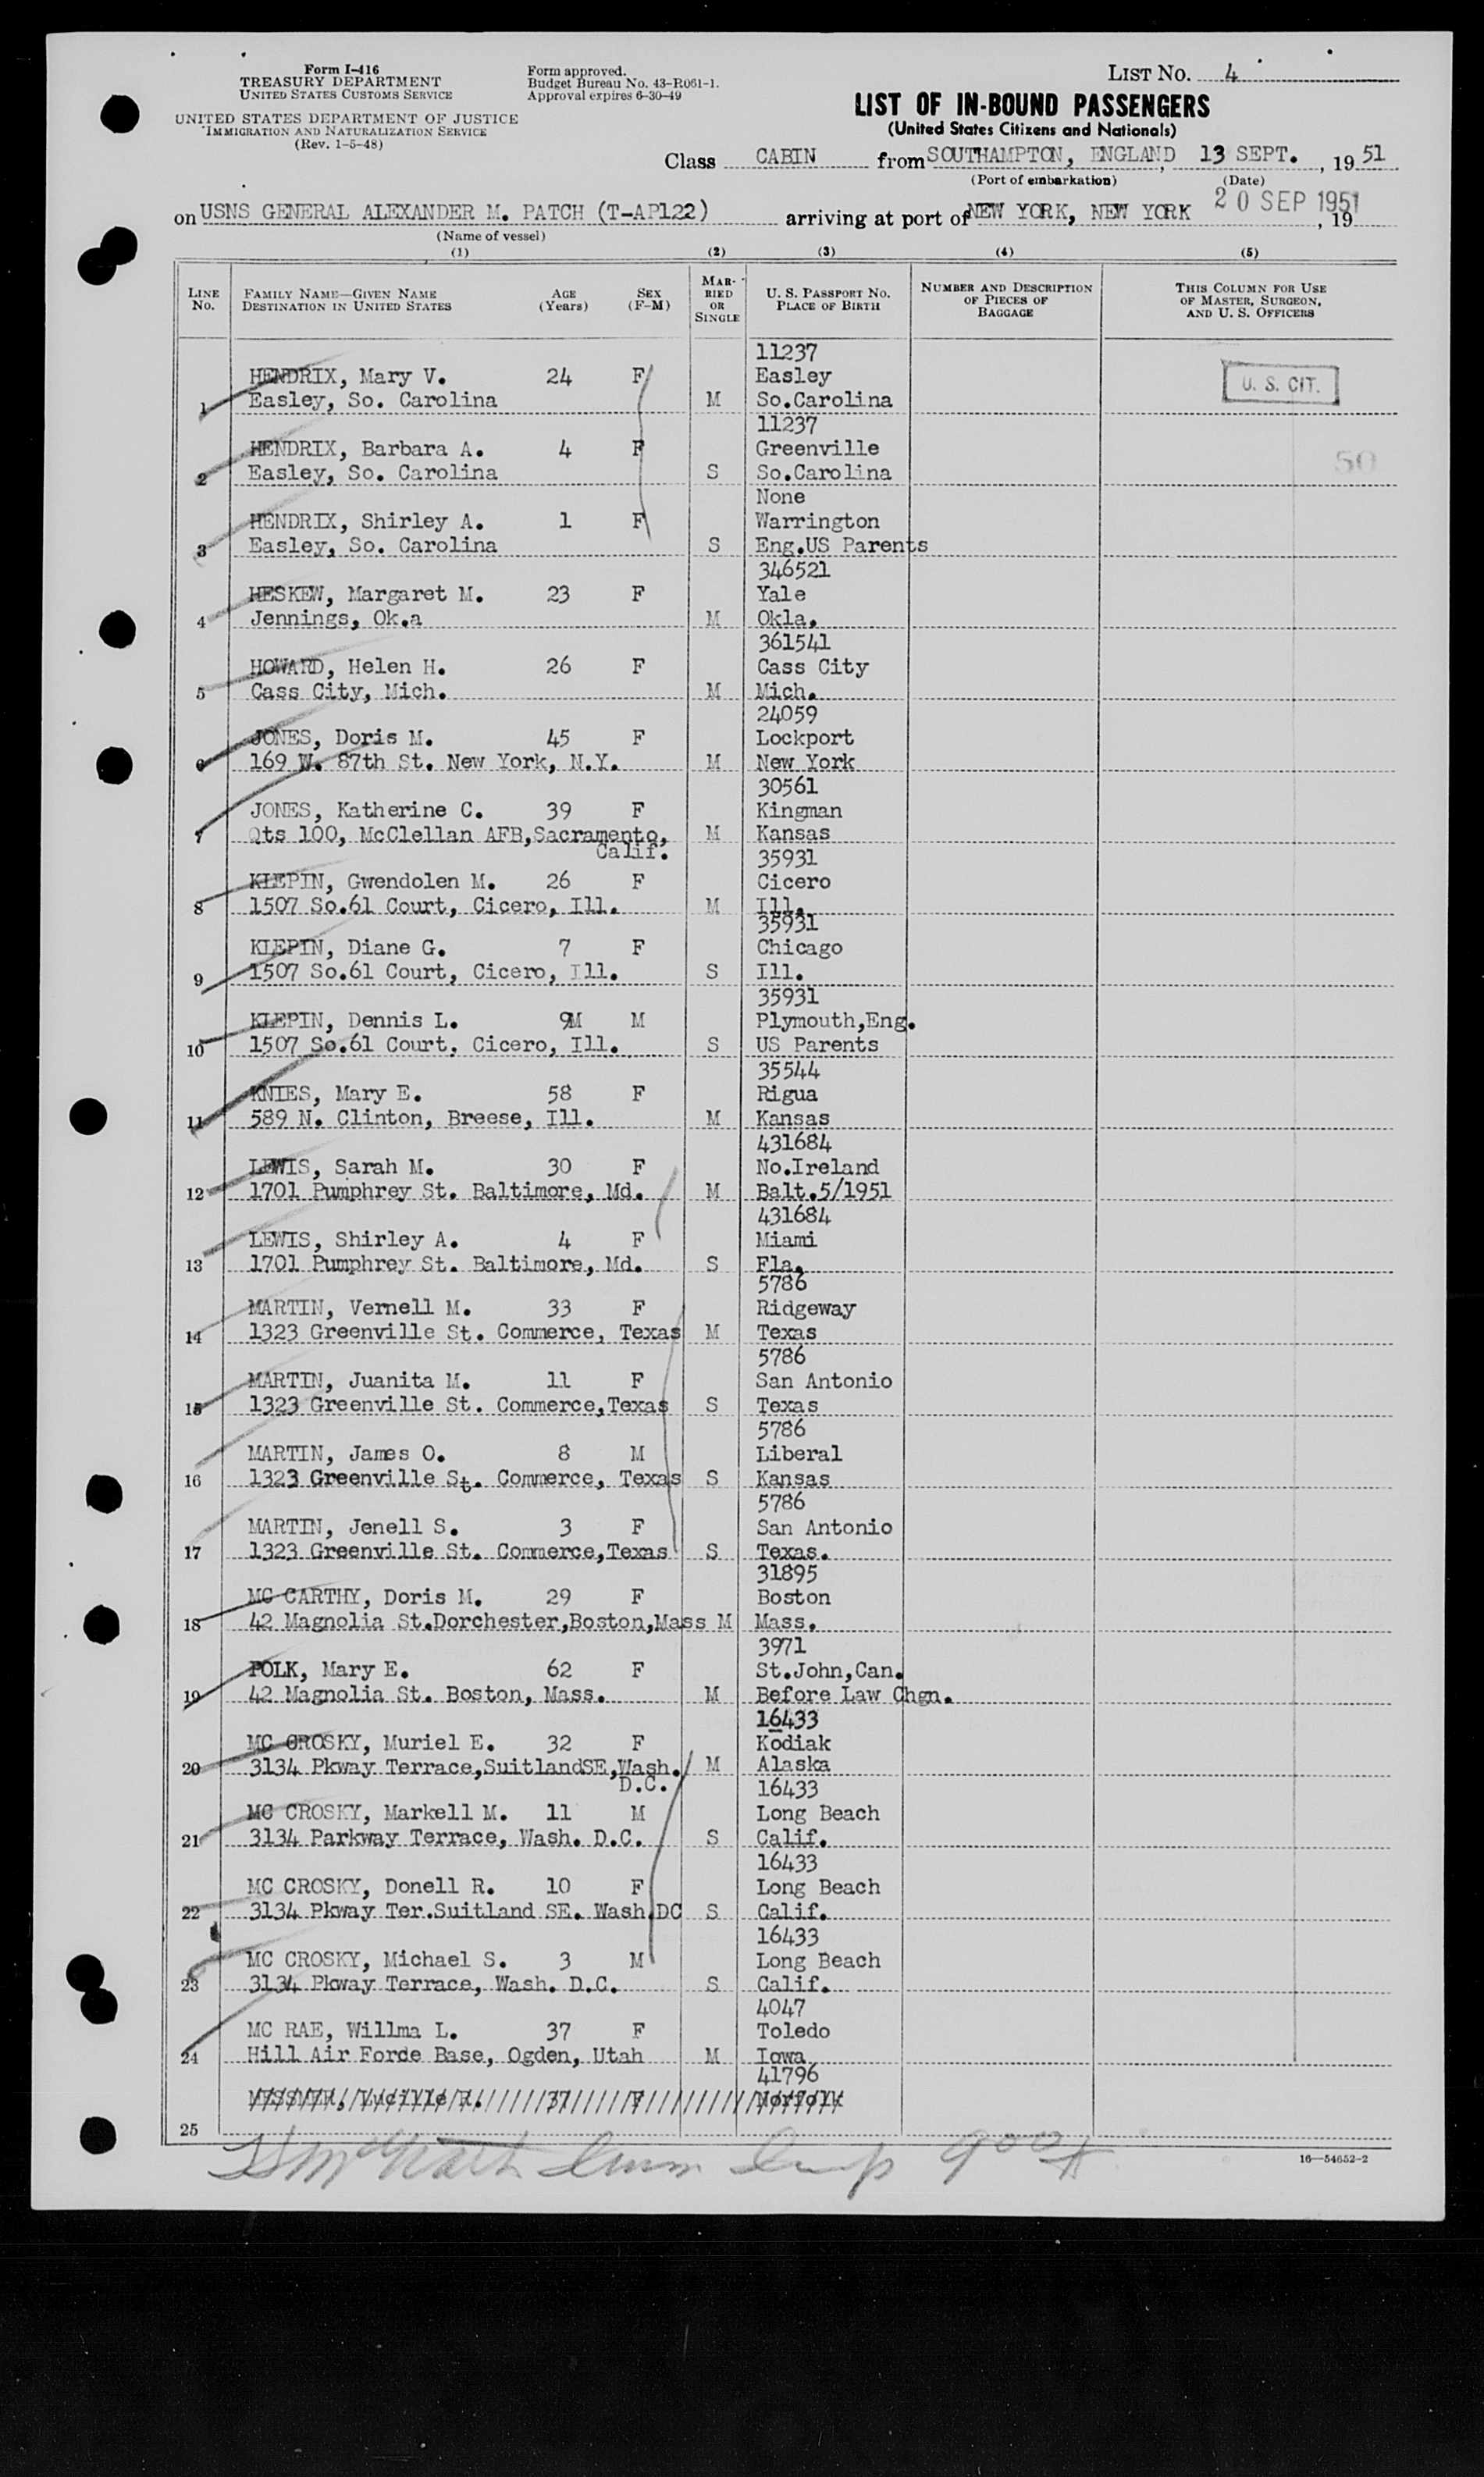 Form I-416
TREASURY DEPARTMENT
UNITED STATES CUSTOMS SERVICE
UNITED STATES DEPARTMENT OF JUSTICE
IMMIGRATION AND NATURALIZATION SERVICE
(Rev. 1-5-48)
Form approved.
Budget Bureau No. 43-R061-1.
Approval expires 6-30-49
LIST NO. 4
LIST OF IN-BOUND PASSENGERS
(United States Citizens and Nationals)
Class CABIN from SOUTHAMPTON, ENGLAND, 13 SEPT., 1951
(Port of embarkation) (Date)
on USNS GENERAL ALEXANDER M. PATCH (T-AP122) arriving at port of NEW YORK, NEW YORK 20 SEP 1951, 19
(Name of vessel)
(1) (2) (3) (4) (5)
LINE NO. FAMILY NAME—GIVEN NAME DESTINATION IN UNITED STATES AGE (Years) SEX (F-M) MARRIED OR SINGLE U. S. PASSPORT NO. PLACE OF BIRTH NUMBER AND DESCRIPTION OF PIECES OF BAGGAGE THIS COLUMN FOR USE OF MASTER, SURGEON, AND U. S. OFFICERS
11237
HENDRIX, Mary V. 24 F Easley U. S. CIT.
1 Easley, So. Carolina M So.Carolina
11237
HENDRIX, Barbara A. 4 F Greenville 50
2 Easley, So. Carolina S So.Carolina
None
HENDRIX, Shirley A. 1 F Warrington
3 Easley, So. Carolina S Eng.US Parents
346521
HESKEW, Margaret M. 23 F Yale
4 Jennings, Ok.a M Okla.
361541
HOWARD, Helen H. 26 F Cass City
5 Cass City, Mich. M Mich.
24059
JONES, Doris M. 45 F Lockport
6 169 W. 87th St. New York, N.Y. M New York
30561
JONES, Katherine C. 39 F Kingman
7 Qts 100, McClellan AFB,Sacramento, M Kansas
Calif. 35931
KLEPIN, Gwendolen M. 26 F Cicero
8 1507 So.61 Court, Cicero, Ill. M Ill.
35931
KLEPIN, Diane G. 7 F Chicago
9 1507 So.61 Court, Cicero, Ill. S Ill.
35931
KLEPIN, Dennis L. 9M M Plymouth,Eng.
10 1507 So.61 Court. Cicero, Ill. S US Parents
35544
KNIES, Mary E. 58 F Rigua
11 589 N. Clinton, Breese, Ill. M Kansas
431684
LEWIS, Sarah M. 30 F No.Ireland
12 1701 Pumphrey St. Baltimore, Md. M Balt.5/1951
431684
LEWIS, Shirley A. 4 F Miami
13 1701 Pumphrey St. Baltimore, Md. S Fla.
5786
MARTIN, Vernell M. 33 F Ridgeway
14 1323 Greenville St. Commerce, Texas M Texas
5786
MARTIN, Juanita M. 11 F San Antonio
15 1323 Greenville St. Commerce,Texas S Texas
5786
MARTIN, James O. 8 M Liberal
16 1323 Greenville St. Commerce, Texas S Kansas
5786
MARTIN, Jenell S. 3 F San Antonio
17 1323 Greenville St. Commerce,Texas S Texas.
31895
MC CARTHY, Doris M. 29 F Boston
18 42 Magnolia St.Dorchester,Boston,Mass M Mass.
3971
POLK, Mary E. 62 F St.John,Can.
19 42 Magnolia St. Boston, Mass. M Before Law Chgn.
16433
MC CROSKY, Muriel E. 32 F Kodiak
20 3134 Pkway Terrace,SuitlandSE,Wash. M Alaska
D.C. 16433
MC CROSKY, Markell M. 11 M Long Beach
21 3134 Parkway Terrace, Wash. D.C. S Calif.
16433
MC CROSKY, Donell R. 10 F Long Beach
22 3134 Pkway Ter.Suitland SE. Wash.DC S Calif.
16433
MC CROSKY, Michael S. 3 M Long Beach
23 3134 Pkway Terrace, Wash. D.C. S Calif.
4047
MC RAE, Willma L. 37 F Toledo
24 Hill Air Forde Base, Ogden, Utah M Iowa
41796
Lucille R. 37 F Norfolk
25
900
16—54652-2